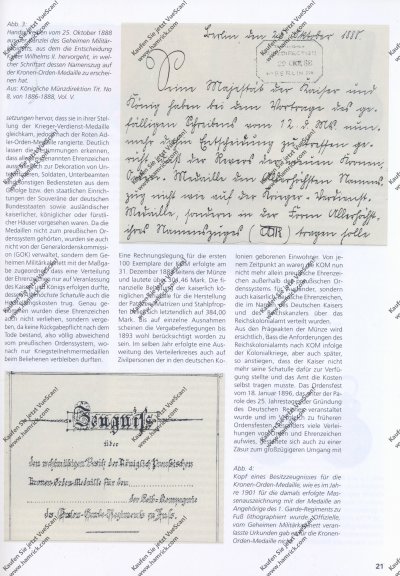 Abb. 3:
vom 25. Oktober 1888
des Geheimen Militär-
aus dem die Entscheidung
Wilhelms II. hervorgeht, in wel-
cher Schriftart dessen Namenszug auf
der Kronen-Orden-Medaille zu erschei-
nen hat.
Aus: Königliche Münzdirektion Tit. No
8, von 1886-1888, Vol. V.
Berlin den 25. Oktober 1888.
BERLIN
Seine Majestät der Kaiser und
König haben bei dem Vortrage des ge-
fälligen Schreibens vom 12. d. Mts. nun-
mehr dahin Entscheidung zu treffen ge-
ruht, daß der Revers der neuen Kronen-
Ordens-Medaille den Allerhöchsten Namens-
zug nicht wie auf der Krieger-Verdienst-
Medaille, sondern in der Form Allerhöch-
ihres Namenszuges ( ) tragen solle
setzungen hervor, dass sie in ihrer Stel-
lung der Krieger-Verdienst-Medaille
gleichkam, jedoch nach der Roten Ad-
ler-Orden-Medaille rangierte. Deutlich
lassen die Bestimmungen erkennen,
dass alle genannten Ehrenzeichen
ausschließlich zur Dekoration von Un-
Soldaten, Unterbeamten
und sonstigen Bediensteten aus dem
Gefolge bzw. den staatlichen Einrich-
tungen der Souveräne der deutschen
Bundesstaaten sowie ausländischer
kaiserlicher, königlicher oder fürstli-
cher Häuser vorgesehen waren. Da die
Medaillen nicht zum preußischen Or-
denssystem gehörten, wurden sie auch
nicht von der Generalordenskommissi-
on (GOK) verwaltet, sondern dem Ge-
heimen Militärkabinett mit der Maßga-
be zugeordnet, dass eine Verteilung
der Ehrenzeichen nur auf Veranlassung
des Kaisers und Königs erfolgen durfte,
dessen höchste Schatulle auch die
Herstellungskosten trug. Genau ge-
nommen wurden diese Ehrenzeichen
auch nicht verliehen, sondern verge-
ben, da keine Rückgabepflicht nach dem
Tode bestand, also völlig abweichend
vom preußischen Ordenssystem, wo-
nach nur Kriegsteilnehmermedaillen
beim Beliehenen verbleiben durften.
Eine Rechnungslegung für die ersten
100 Exemplare der KOM erfolgte am
31. Dezember 1888 seitens der Münze
und lautete über 46 Mark. Die fi-
nanzielle Belastung der kaiserlich kö-
niglichen Schatulle für die Herstellung
der Patrizen, Matrizen und Stahlpfrop-
fen belief sich letztendlich auf 384,00
Mark. Bis auf einzelne Ausnahmen
scheinen die Vergabefestlegungen bis
1893 wohl berücksichtigt worden zu
sein. Im selben Jahr erfolgte eine Aus-
weitung des Verteilerkreises auch auf
Zivilpersonen der in den deutschen Ko-
lonien geborenen Einwohner. Von je-
nem Zeitpunkt an waren die KOM nun
nicht mehr allein preußische Ehrenzei-
chen außerhalb des preußischen Or-
denssystems für Ausländer, sondern
auch kaiserlich deutsche Ehrenzeichen,
die im Namen des Deutschen Kaisers
und des Reichskanzlers über das
Reichskolonialamt verteilt wurden.
Aus den Prägeakten der Münze wird
ersichtlich, dass die Anforderungen des
Reichskolonialamts nach KOM infolge
der Kolonialkriege, aber auch später,
so anstiegen, dass der Kaiser nicht
mehr seine Schatulle dafür zur Verfü-
gung stellte und das Amt die Kosten
selbst tragen musste. Das Ordensfest
vom 18. Januar 1896, das unter der Pa-
role des 25. Jahrestages der Gründung
des Deutschen Reiches veranstaltet
wurde und im Vergleich zu früheren
Ordensfesten besonders viele Verlei-
hungen von Orden und Ehrenzeichen
aufwies, gestaltete sich auch zu einer
Zäsur zum großzügigeren Umgang mit
Zeugniß
über
den rechtmäßigen Besitz der Königlich Preußischen
Kronen-Orden-Medaille für den
der Leib-Compagnie
des Ersten Garde-Regiments zu Fuß.
Abb. 4:
Kopf eines Besitzzeugnisses für die
Kronen-Orden-Medaille, wie es im Jah-
re 1901 für die damals erfolgte Mas-
senauszeichnung mit der Medaille an
Angehörige des 1. Garde-Regiments zu
Fuß lithographiert wurde. Offizielle,
vom Geheimen Militärkabinett veran-
lasste Urkunden gab es für die Kronen-
Orden-Medaille nicht.
21
Kaufen Sie jetzt VueScan!
www.hamrick.com